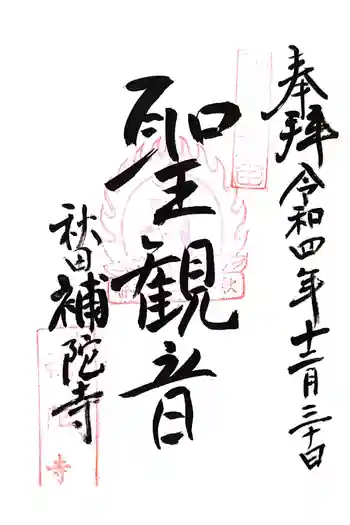 奉拜
令和四年十二月三十日
聖観音
秋田補陀寺